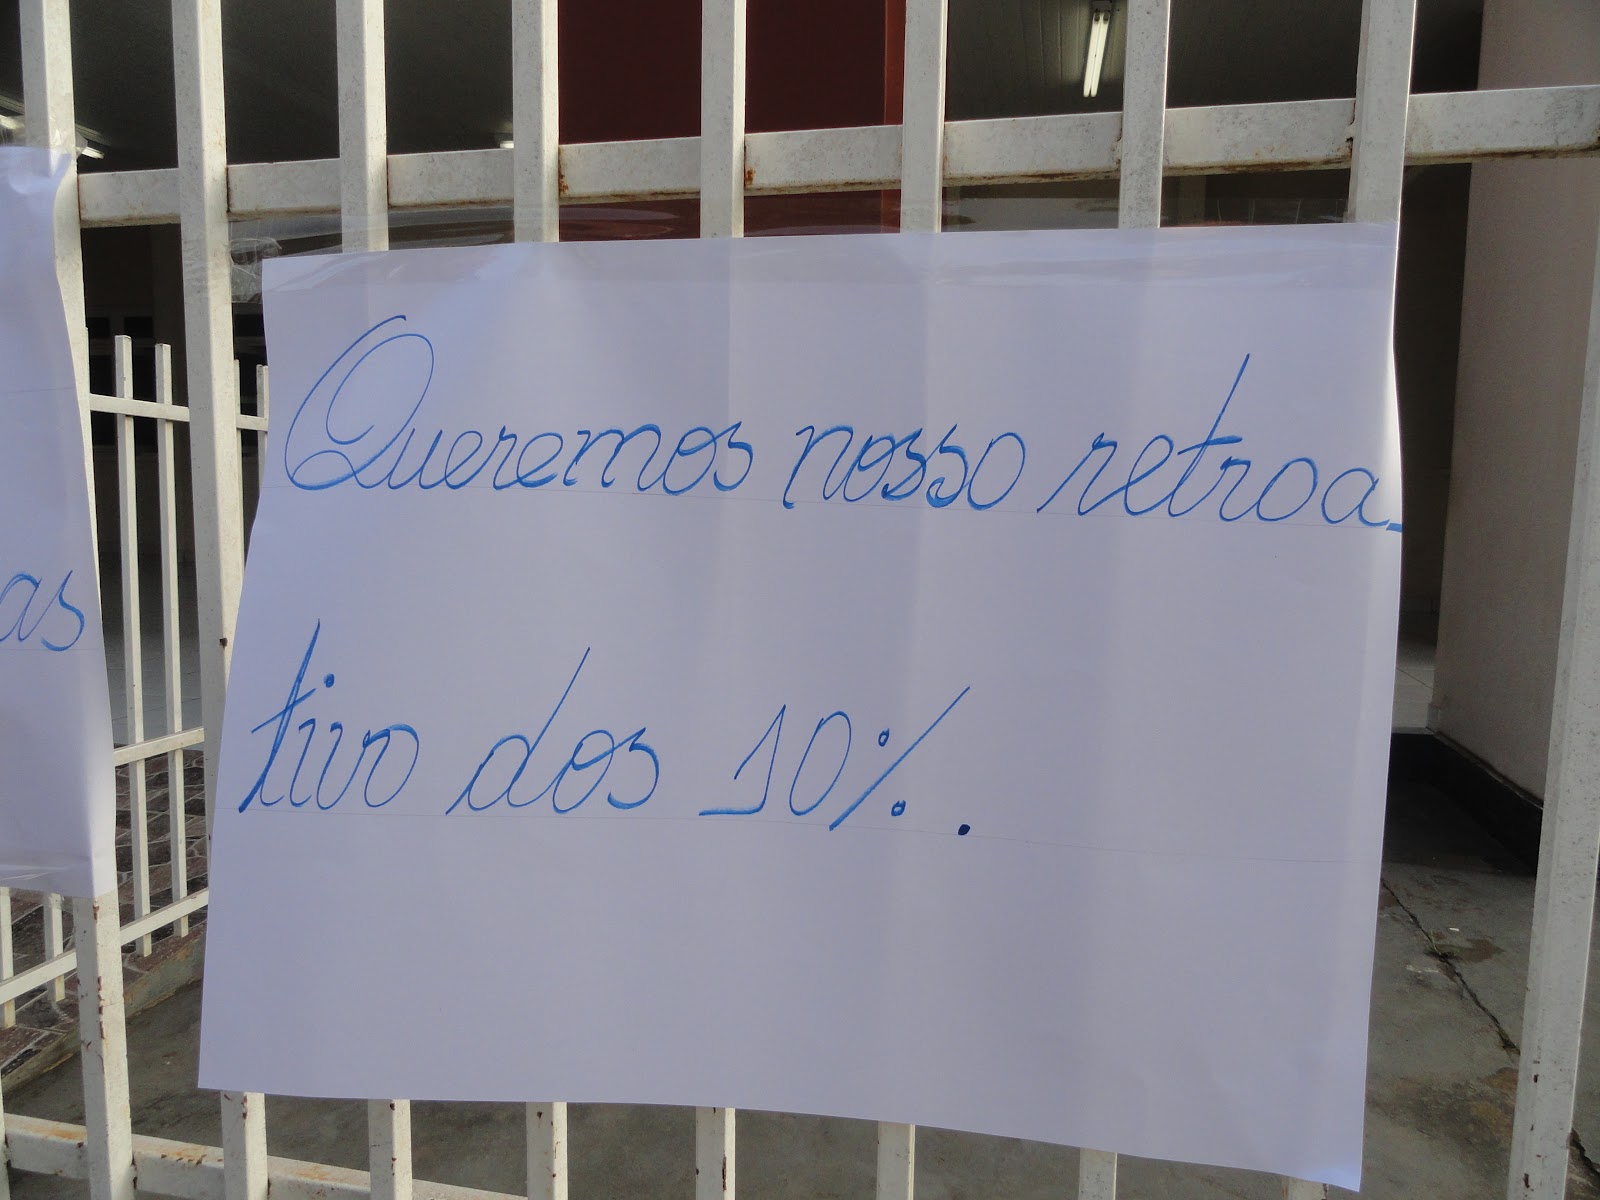 Queremos nosso retroa-
tivo dos 10%.
as